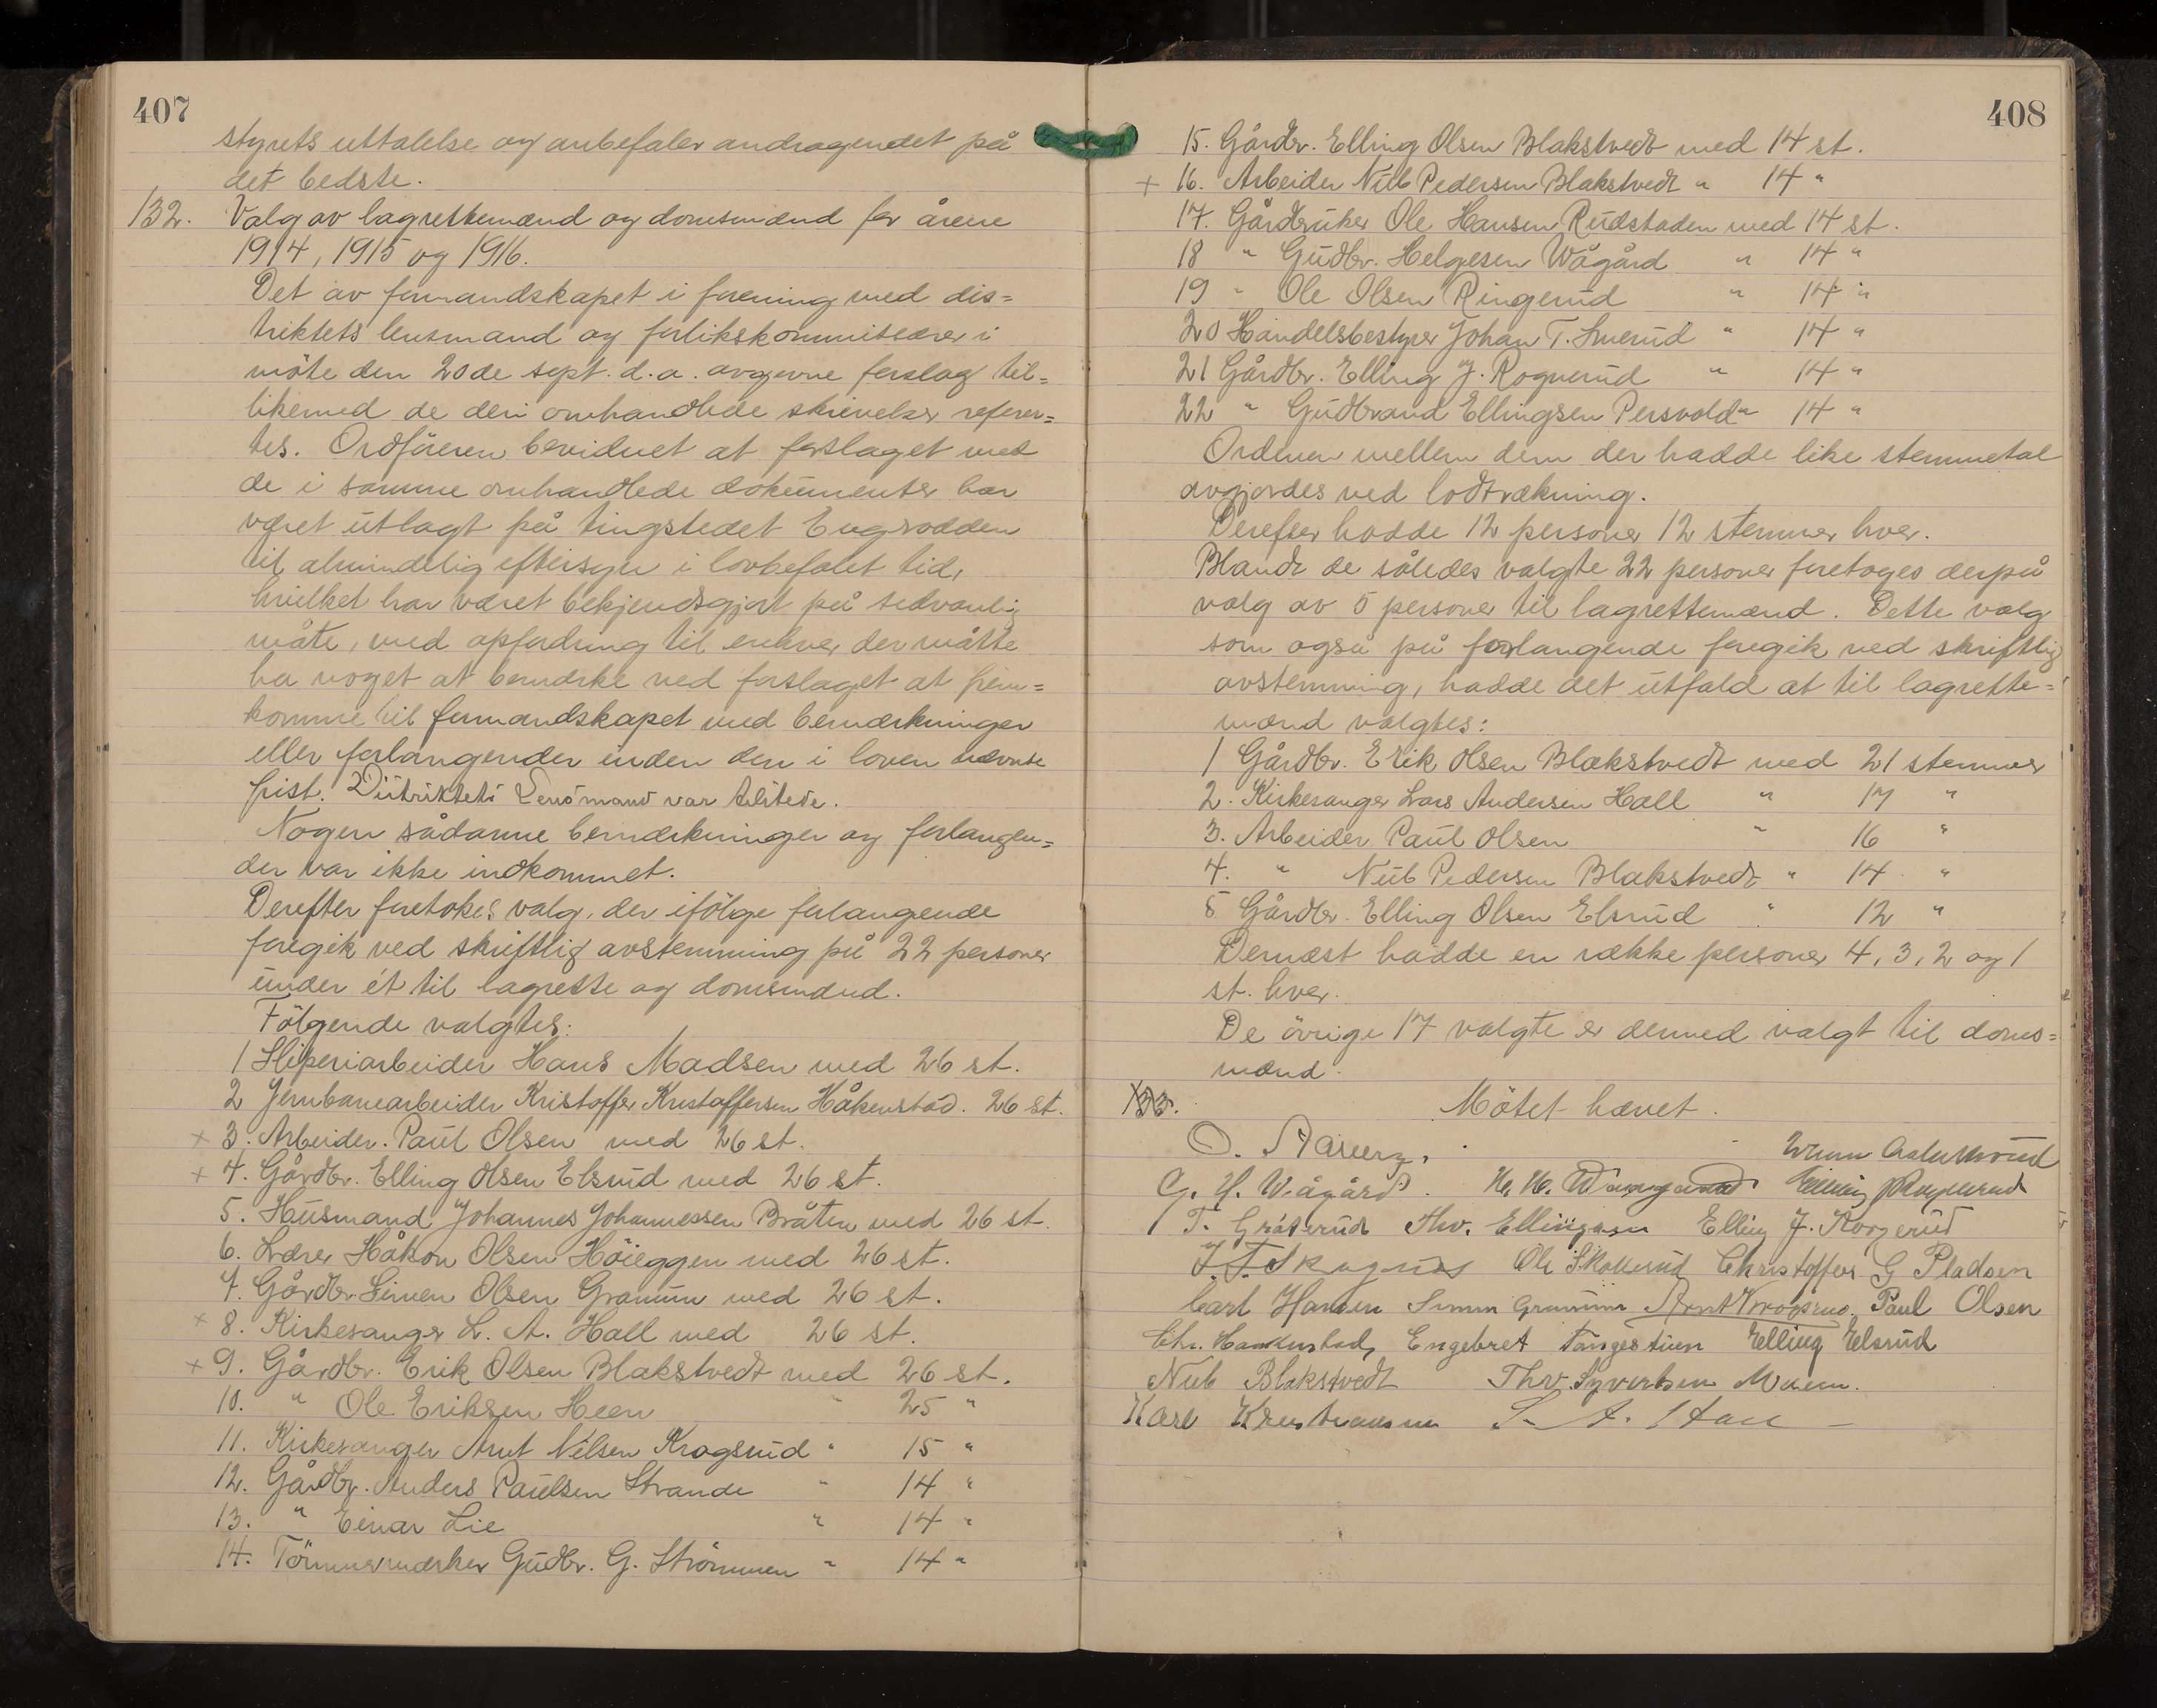 407
styrets uttalelse og anbefaler andragendet på
det bedste.
132. Valg av lagrettemænd og domsmænd for årene
1914, 1915 og 1916.
Det av formandskapet i forening med dis=
triktets lensmand og forlikskommissærer i
møte den 20de sept. d.a. avgivne forslag til=
likemed de deri omhandlede skrivelser referer=
tes. Ordföreren bevidnet at forslaget med
de i samme omhandlede dokumenter har
været utlagt på tingstedet
til almindelig eftersyn i lovbefalet tid,
hvilket har været bekjendtgjort på sedvanlig
måte, med opfordring til enhver der måtte
ha noget at bemærke ved forslaget at frem=
komme til formandskapet med bemærkninger
eller forlangender inden den i loven nævnte
frist. Distriktets Lensmand var tilstede.
Nogen sådanne bemærkninger og forlangen=
der var ikke indkommet.
Derefter foretokes valg, der ifölge forlangende
foregik ved skriftlig avstemming på 22 personer
under ét til lagrette og domsmænd.
Fölgende valgtes:
1 Sliperiarbeider Hans Madsen med 26 st.
2 Jernbanearbeider Kristoffer Kristoffersen Håkenstad. 26 st.
+ 3. Arbeider. Paul Olsen med 26 st.
+ 4. Gårdbr. Elling Olsen Elsrud med 26 st.
5. Husmand Johannes Johannessen Bråten med 26 st.
6. Lærer Håkon Olsen Höieggen med 26 st.
7. Gårdbr. Simen Olsen Gramum med 26 st.
+ 8. Kirkesanger L. A. Hall med 26 st.
+ 9. Gårdbr. Erik Olsen Blakstvedt med 26 st.
10. " Ole Eriksen Heen " 25 "
11. Kirkesanger Arnt Nilsen Kragsrud " 15 "
12. Gårdbr. Anders Paulsen Strande " 14 "
13. " Einar Lie " 14 "
14. Tömmermærker Gudbr. G. Strömmen " 14 "
408
15. Gårdbr. Elling Olsen Blakstvedt med 14 st.
+ 16. Arbeider Nils Pedersen Blakstvedt " 14 "
17. Gårdbruker Ole Hansen Rudstaden med 14 st.
18 " Gudbr. Helgesen Wågård " 14 "
19 " Ole Olsen Ringerud " 14 "
20 Handelsbestyrer Johan T. Smerud " 14 "
21 Gårdbr. Elling J. Rognerud " 14 "
22 " Gudbrand Ellingsen Persvold " 14 "
Ordenen mellem dem der hadde like stemmetal
avgjordes ved lodtrækning.
Derefter hadde 12 personer 12 stemmer hver.
Blandt de således valgte 22 personer foretoges derpå
valg av 5 personer til lagrettemænd. Dette valg
som også på forlangende foregik ved skriftlig
avstemming, hadde det utfald at til lagrette=
mænd valgtes:
1 Gårdbr. Erik Olsen Blakstvedt med 21 stemmer
2. Kirkesanger Lars Andersen Hall " 17 "
3. Arbeider Paul Olsen " 16 "
4. " Nils Pedersen Blakstvedt " 14 "
5 Gårdbr. Elling Olsen Elsrud " 12 "
Dernæst hadde en række personer 4, 3, 2 og 1
st. hver.
De övrige 17 valgte er dermed valgt til doms=
mænd.
133. Mötet hævet.
G. H. Wågård.
T. Gråterud Thv. Ellingsen Elling J.
Ole Skollerud Christoffer G Pladsen
Carl Hansen Simen Gramum Arnt Kragsrud. Paul Olsen
Chr. Haakenstad, Engebret Tangestuen Elling Elsrud
Nils Blakstvedt Thv. Syvertsen Moen.
Karl Kristiansen L. A. Hall